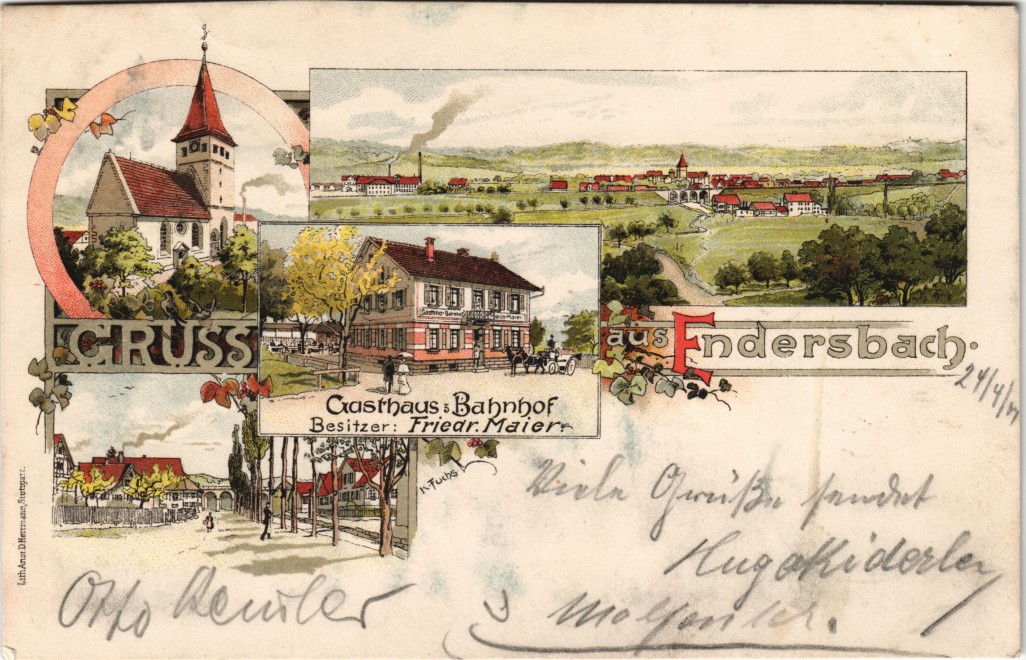 GRUSS aus Endersbach.
Gasthaus z. Bahnhof
Gasthaus z. Bahnhof
Besitzer: Friedr. Maier
K. Fuchs
Lith. Anst. D. Herrmann, Stuttgart.
24/4/
Viele Grüße sendet
Hugo Kiderlen
Otto